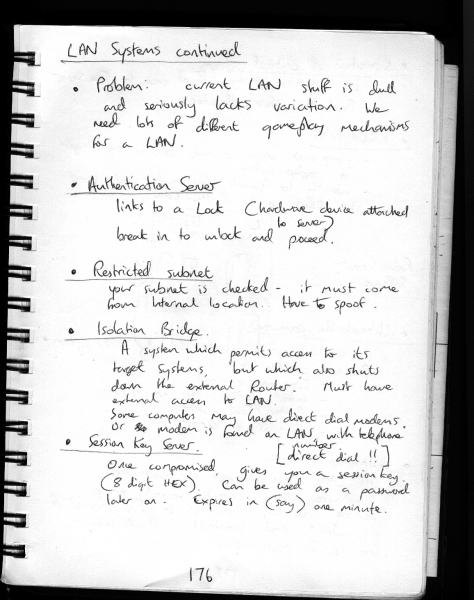 LAN Systems continued
• Problem: current LAN stuff is dull
and seriously lacks variation. We
need lots of different gameplay mechanisms
for a LAN.
• Authentication Server
links to a Lock (hardware device attached
to server)
break in to unlock and proceed.
• Restricted subnet
your subnet is checked - it must come
from Internal location. Have to spoof.
• Isolation Bridge.
A system which permits access to its
target systems, but which also shuts
down the external Router. Must have
external access to LAN.
Some computers may have direct dial modems.
Or modem is found on LAN with telephone
number.
• Session Key Server. [direct dial !!]
Once compromised, gives you a session key.
(8 digit HEX). Can be used as a password
later on. Expires in (say) one minute.
176